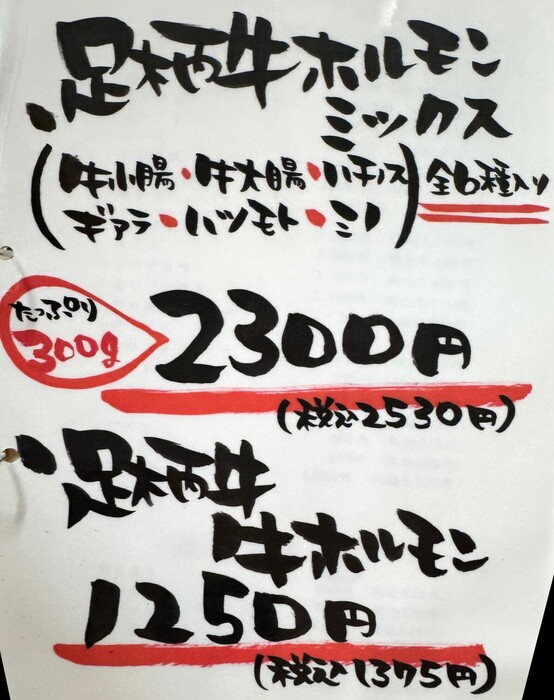 足柄牛ホルモン
ミックス
(牛小腸・牛大腸・ハチノス
ギアラ・ハツモト・ミノ)
全6種入り
たっぷり
300g
2300円
(税込2530円)
足柄牛
牛ホルモン
1250円
(税込1375円)